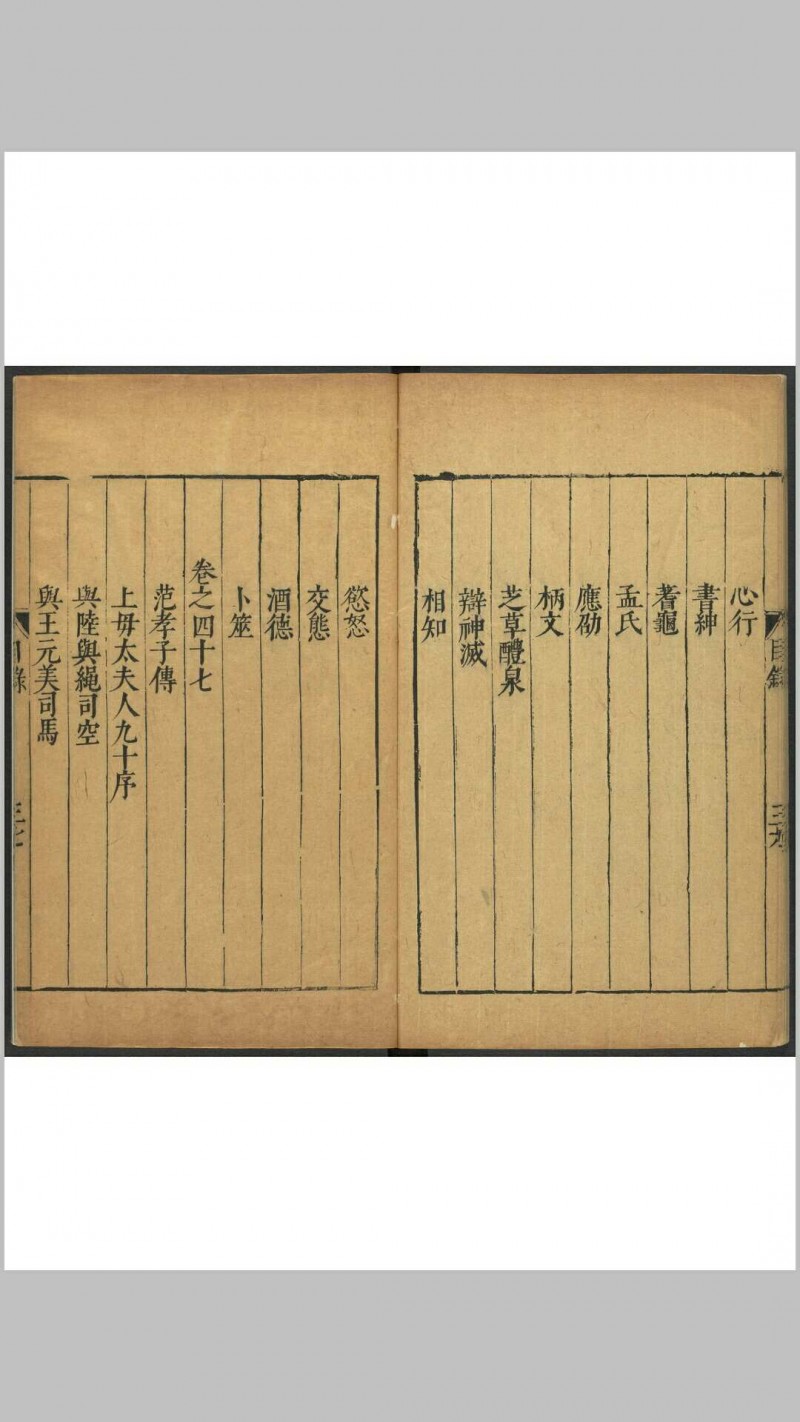 心行
書紳
蓍龜
孟氏
應劭
柄文
芝草醴泉
辯神滅
相知
慾怒
交態
酒德
卜筮
卷之四十七
范孝子傳
上毋太夫人九十序
與陸與繩司空
與王元美司馬
目錄